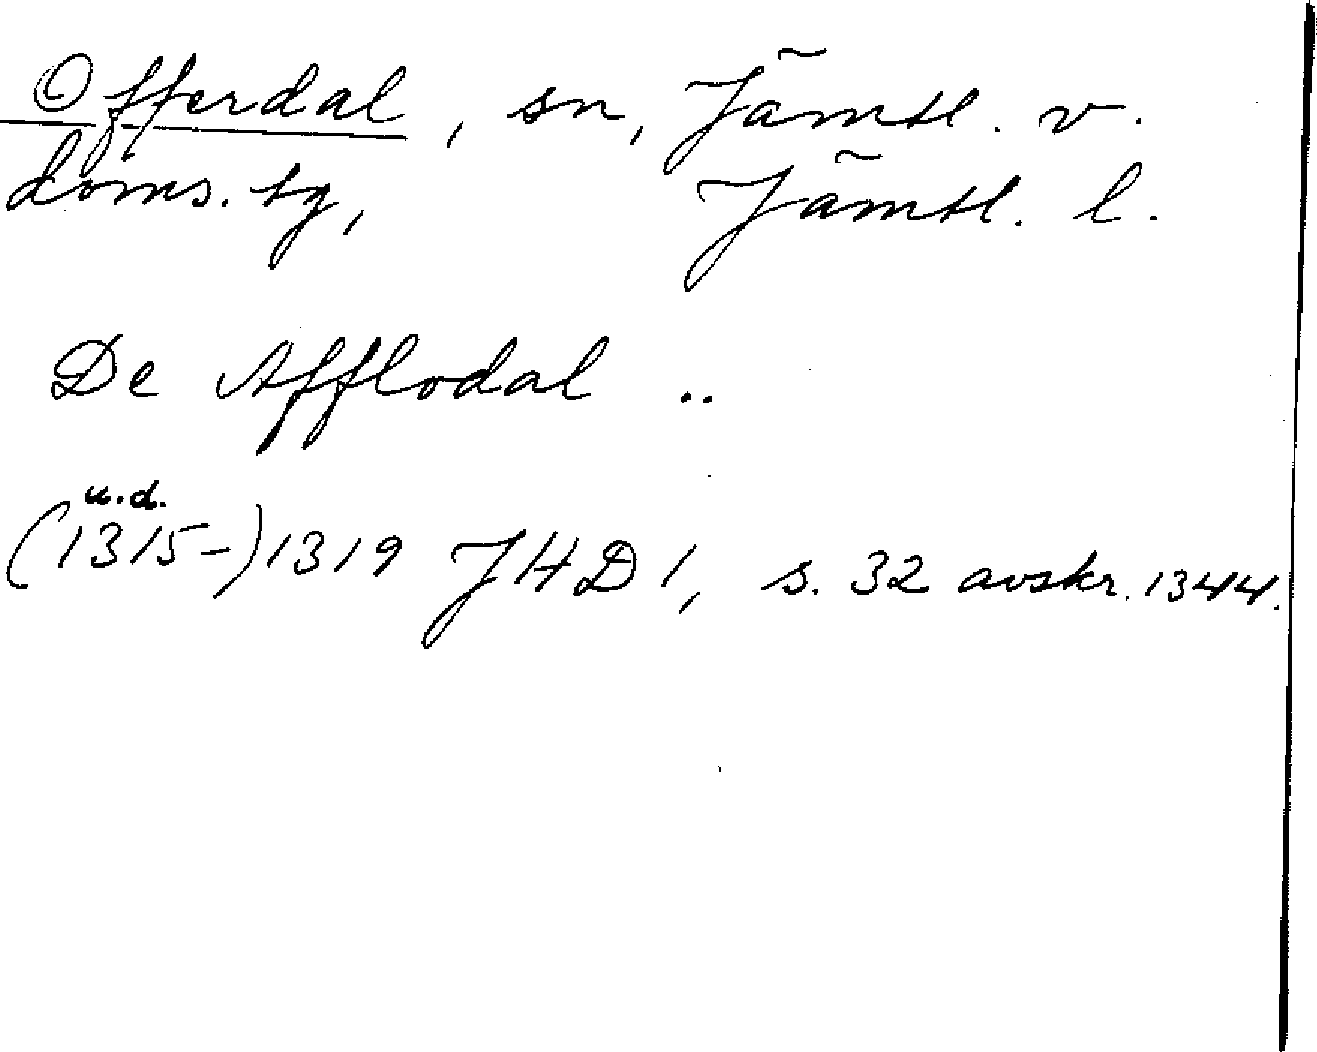 Offerdal, sn, Jämtl. v.
doms. tg, Jämtl. l.
De Afflodal ..
u.d.
(1315-)1319 JHD 1, s. 32 avskr. 1344.